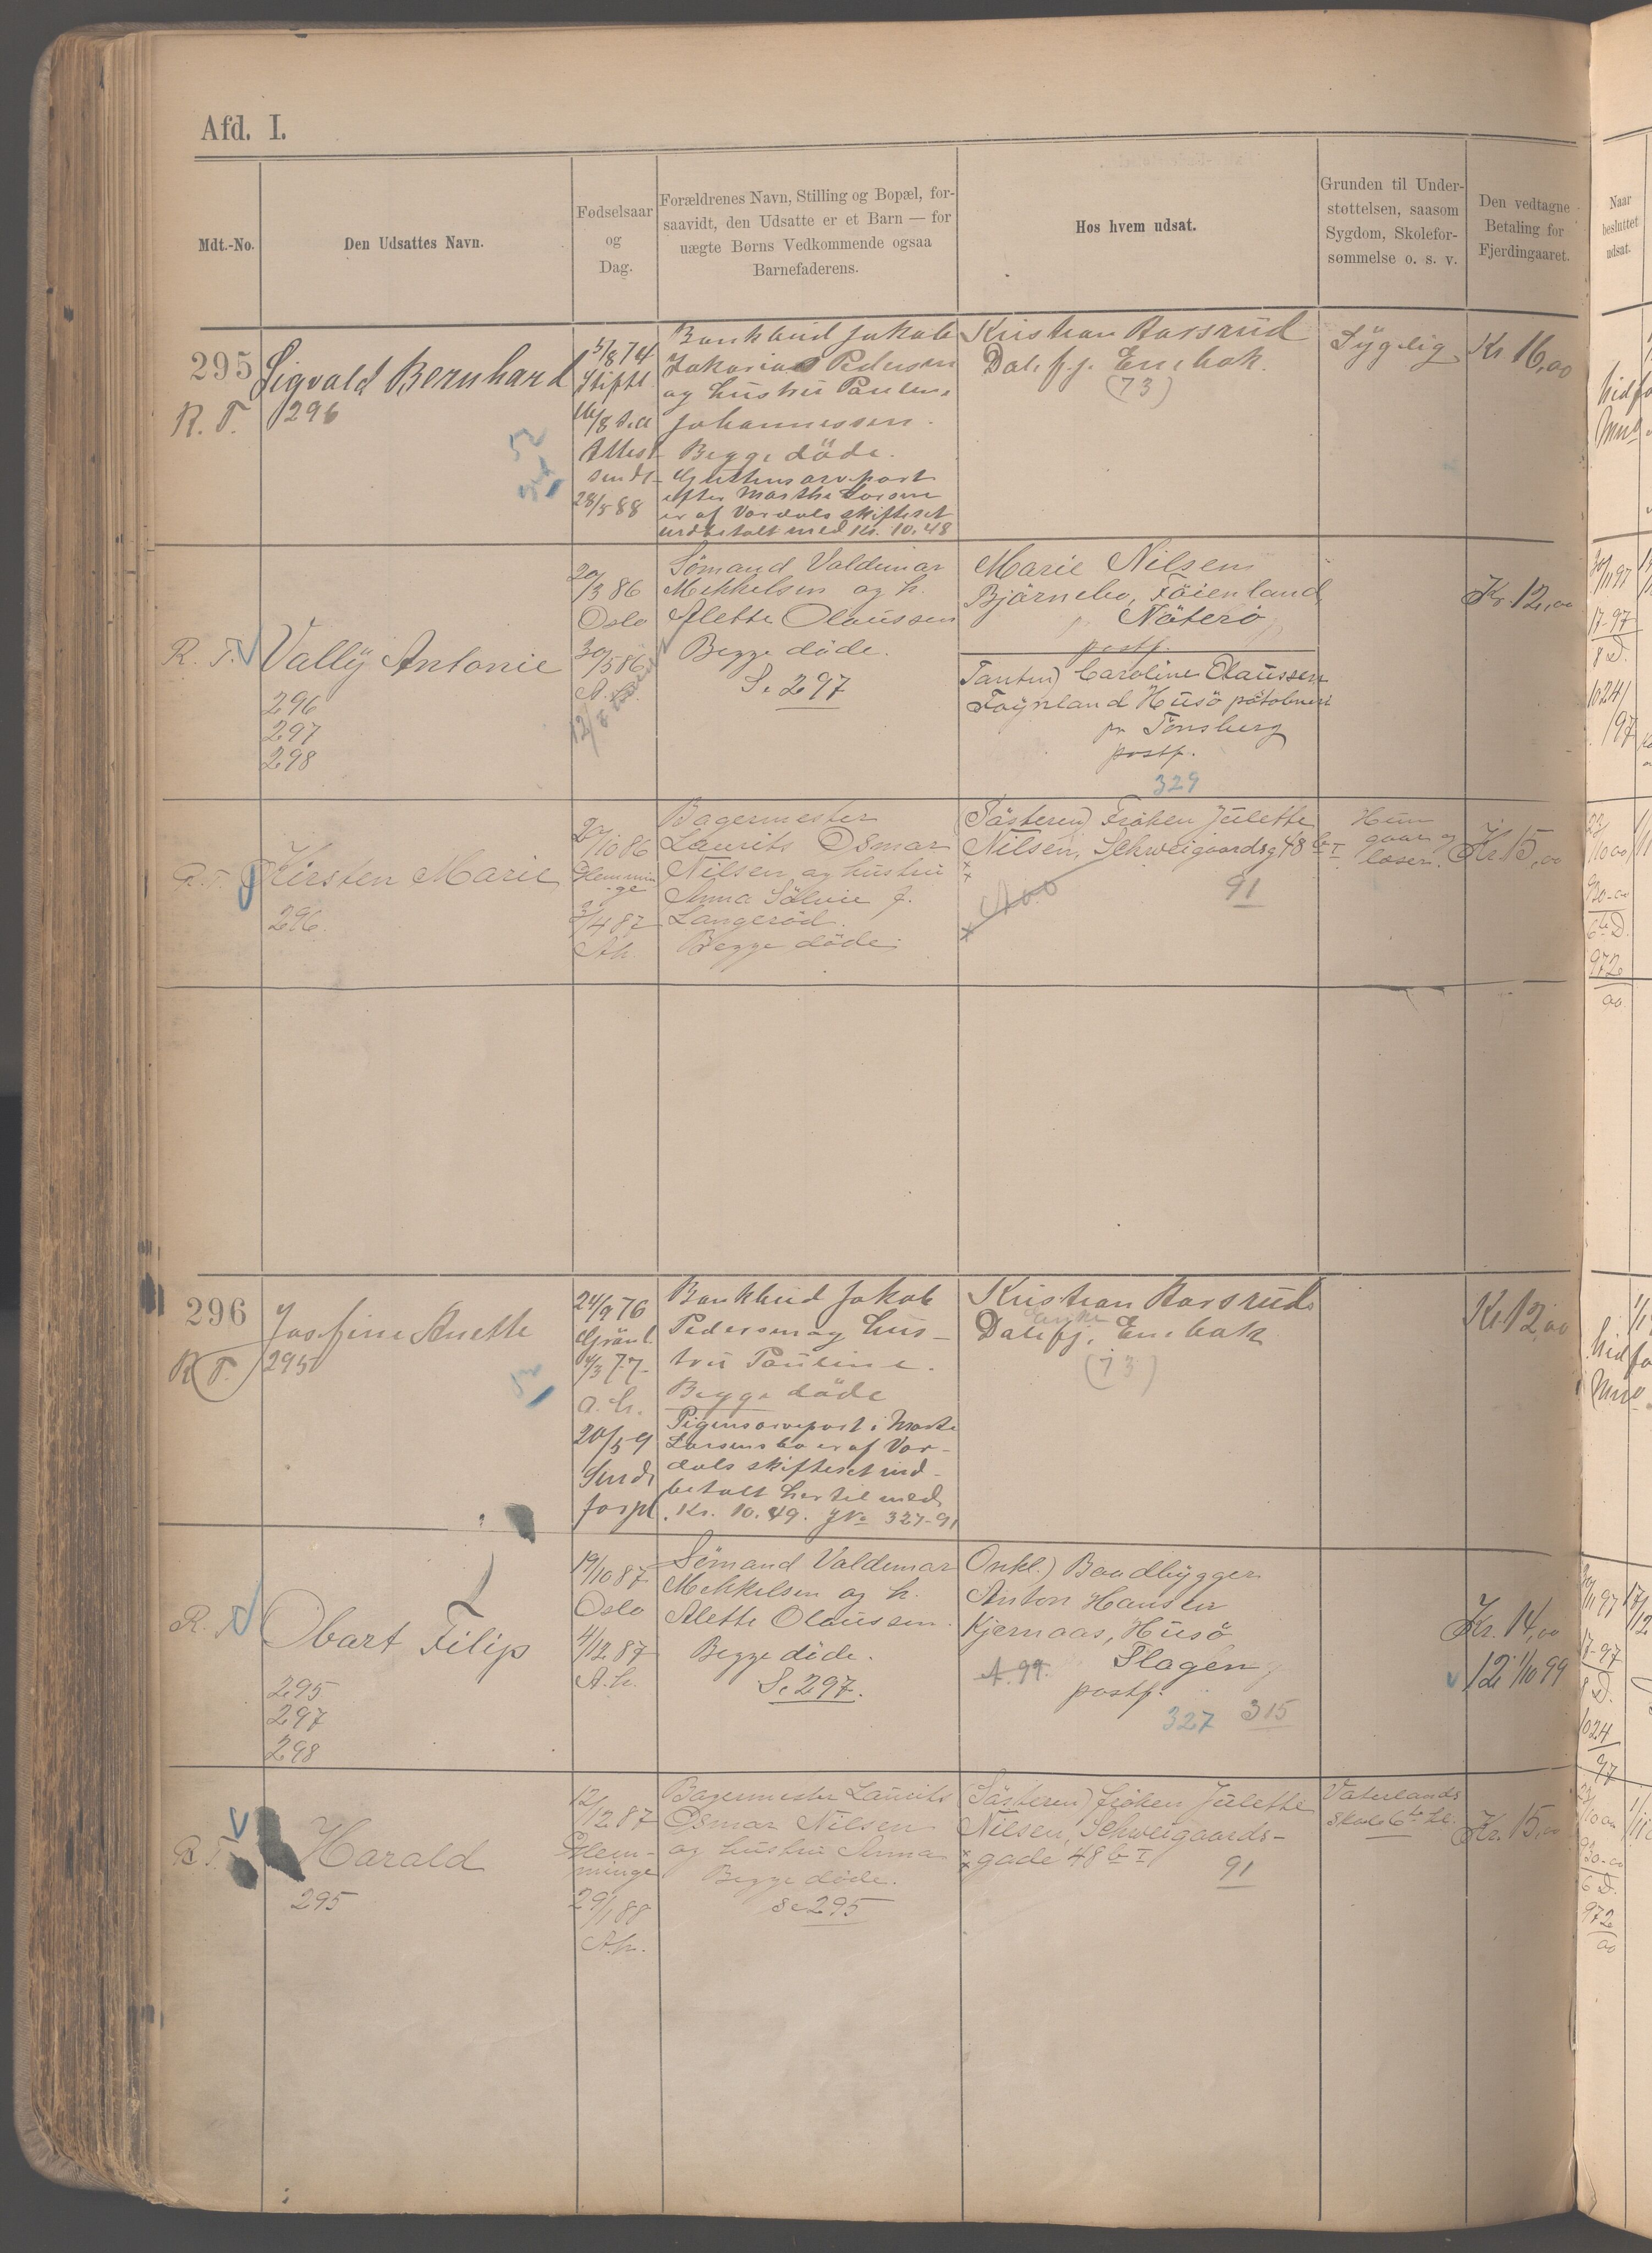 Afd. I.
Mdt.-No.
Den Udsattes Navn.
Fødselsaar
og
Dag.
Forældrenes Navn, Stilling og Bopæl, for-
saavidt, den Udsatte er et Barn — for
uægte Børns Vedkommende ogsaa
Barnefaderens.
Hos hvem udsat.
Grunden til Under-
støttelsen, saasom
Sygdom, Skolefor-
sømmelse o. s. v.
Den vedtagne
Betaling for
Fjerdingaaret.
Naar
besluttet
udsat.
295
R. T.
Sigvald Bernhard
296
5/8 74
16/8
Attest
sendt
28/5 88
Bankbud Jakob
Zakarias Pedersen
og hustru Pauline
Johannessen.
Begge døde.
Guttens arvepart
efter Marthe Larsen
er af Vardals skifteret
indbetalt med Kr. 10.48
Kristian Aasrud
Dal. p.g. Enebak.
(73)
Sygelig
Kr 16,00
R. T.
Vally Antonie
296
297
298
20/3 86
Oslo
30/5 86
Sømand Valdemar
Mekkelsen og h.
Alette Olaussen
Begge døde.
Se 297
Marie Nilsen
Bjørnebo, Føienland,
Nøterø
postf.
Tanten) Caroline Olaussen
Føynland Husø påtobneri
pr Tønsberg
postf.
329
Kr. 12,00
R. T.
Kirsten Marie
296.
27/10 86
Glemmin
ge
3/4 87
A.h.
Bagermester
Laurits Osmar
Nilsen og hustru
Anna Sølvie f.
Langerød.
Begge døde.
Søsteren) Frøken Julette
Nilsen, Schweigaardsg 48 b I
91
Hun
gaar og
læser.
Kr. 15,00
296
R. T.
Josefine Anette
295
24/9 76
Grønl.
4/3 77
a. h.
20/5 9
Sendt
forpl.
Bankbud Jakob
Pedersen og hus-
tru Pauline.
Begge døde
Pigens arvepart i Marte
Larsens bo er af Var-
dals skifteret ind-
betalt hertil med
Kr. 10.49. JNo 327-91
Kristian Aasrud
Dal. p.g. Enebak
(73)
Kr. 12,00
R. T.
Obart Filip
295
297
298
19/10 87
Oslo
4/12 87
A.h.
Sømand Valdemar
Mekkelsen og h.
Alette Olaussen.
Begge døde.
Se 297.
Onkl.) Baadbygger
Anton Hansen
Kjernaas, Husø
A. 99. Slagen
postf.
327 315
Kr. 14,00
12 1/10 99
R. T.
Harald
295
12/12 87
Glem-
minge
29/1 88
A.h.
Bagermester Laurits
Osmar Nilsen
og hustru Anna
Begge døde.
Se 295
Søsteren) frøken Julette
Nilsen, Schweigaards-
gade 48 b I
91
Vaterlands
skole 6te kl.
Kr. 15,00